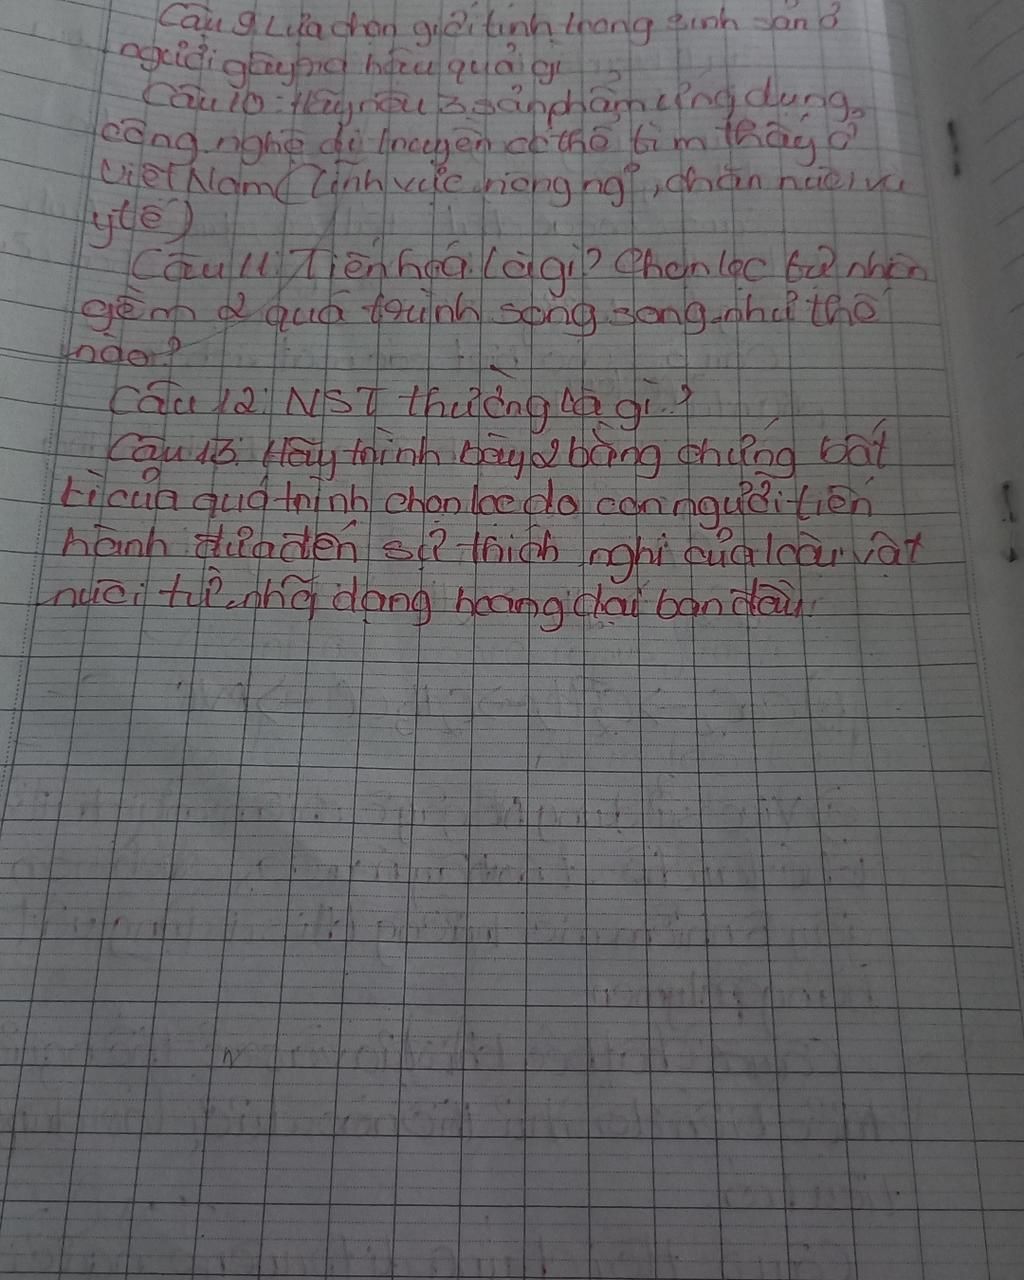 Câu 9 Lựa chọn giới tính trong sinh sản ở
người gây ra hậu quả gì
Câu 10: Hãy nêu 3 sản phẩm ứng dụng
công nghệ di truyền có thể tìm thấy ở
Việt Nam (lĩnh vực nông ng°, chăn nuôi, và
y tế)
Câu 11: Tiến hoá là gì? Chọn lọc tự nhiên
gồm 2 quá trình song song như thế
nào?
Câu 12: NST thường là gì?
Câu 13: Hãy trình bày 2 bằng chứng bất
kì của quá trình chọn lọc do con người tiến
hành đưa đến sự thích nghi của loài vật
nuôi từ những dạng hoang dại ban đầu.